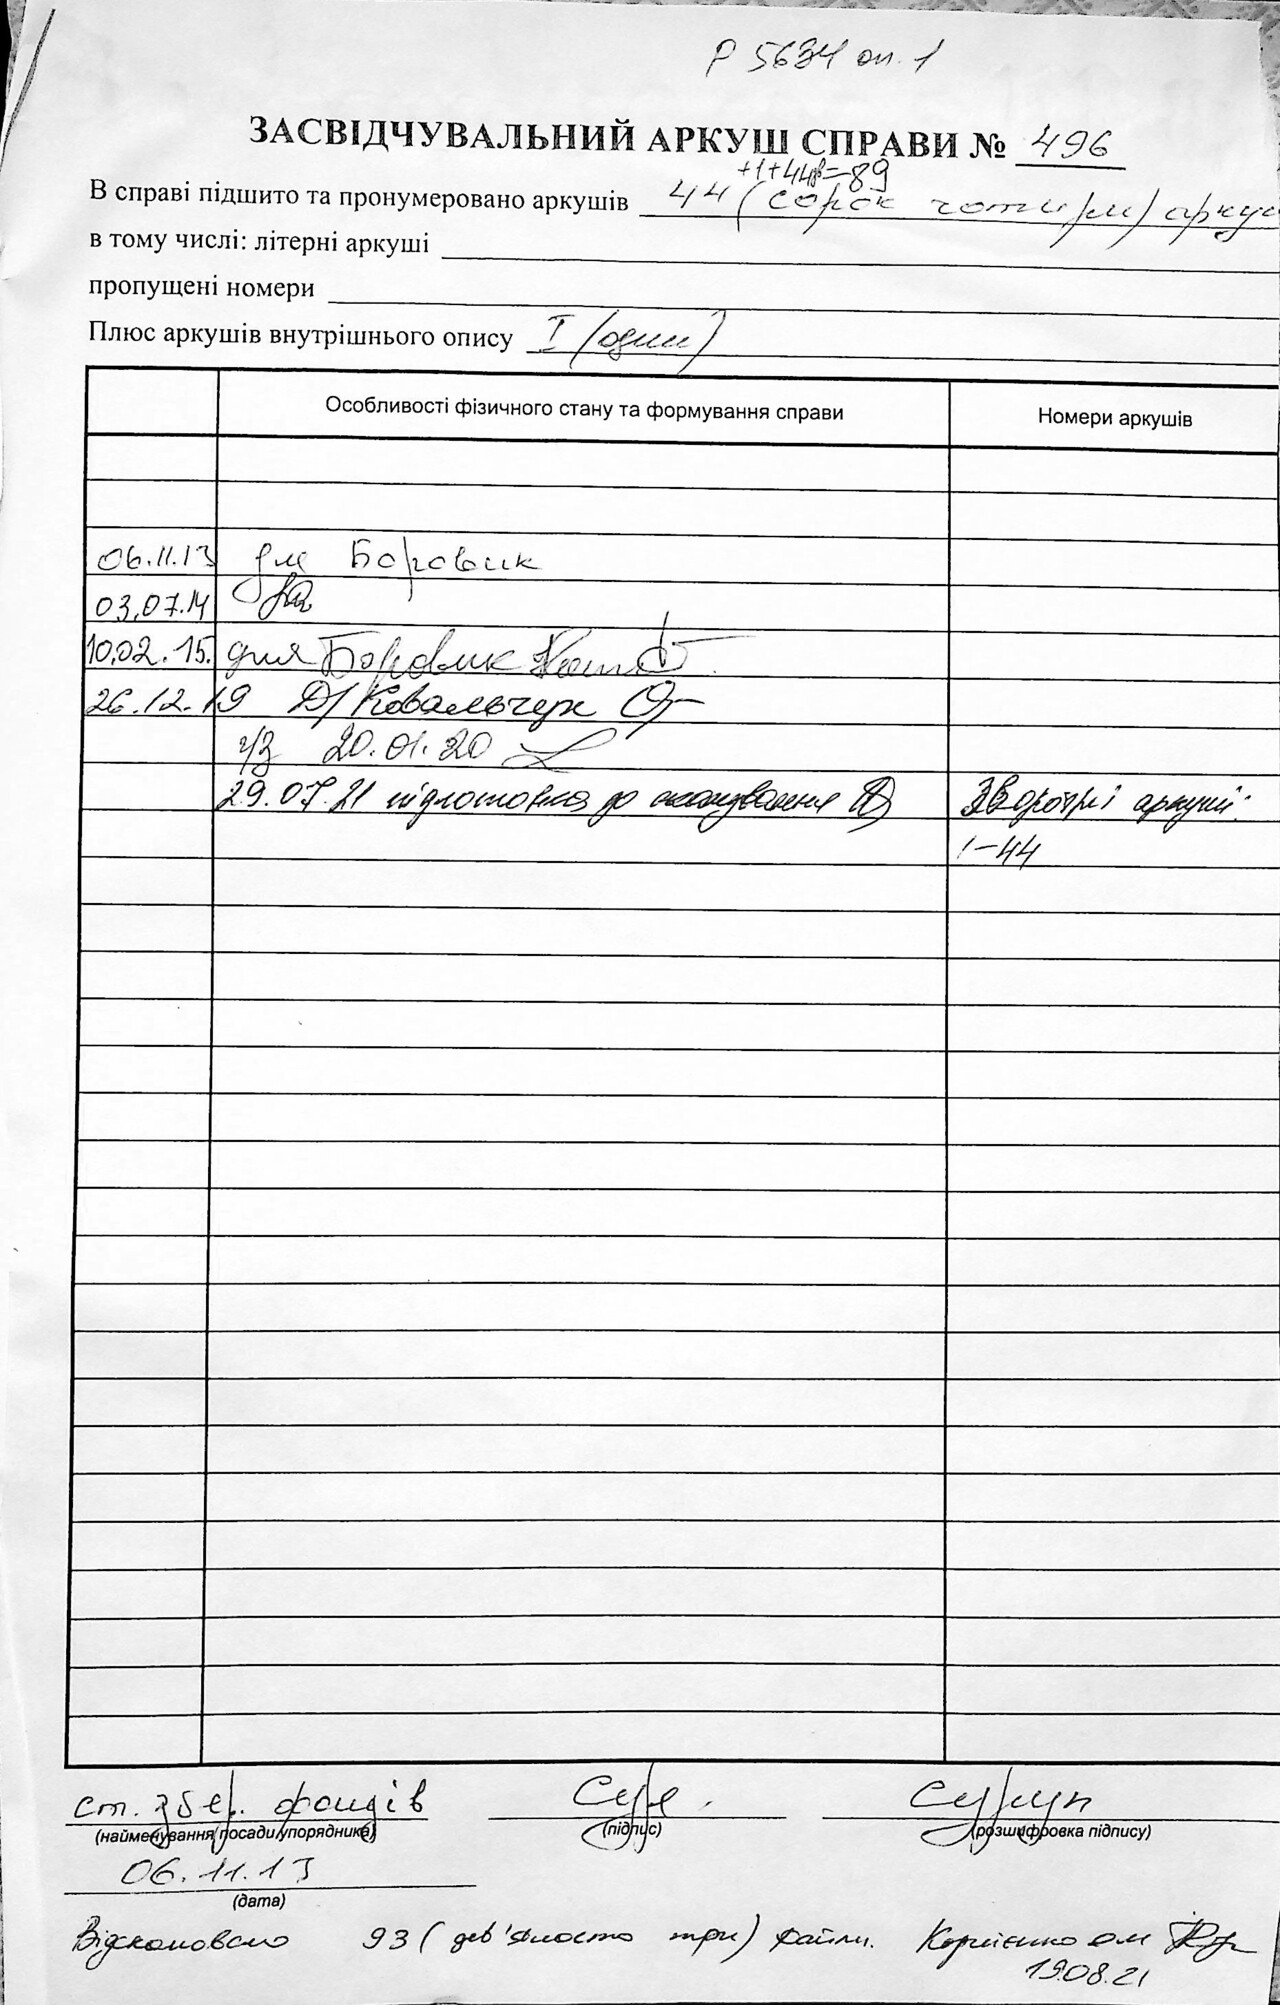 Р 5634 оп. 1
ЗАСВІДЧУВАЛЬНИЙ АРКУШ СПРАВИ № 496
+1+44зв=89
В справі підшито та пронумеровано аркушів 44 (сорок чотири) аркуш
в тому числі: літерні аркуші
пропущені номери
Плюс аркушів внутрішнього опису I (один)
Особливості фізичного стану та формування справи Номери аркушів
06.11.13 для Боровик
03.07.14
10.02.15. для Боровик
26.12.19 Д/Ковальчук
ч/з 20.01.20
29.07.21 підготовка до сканування Зворотні аркуші:
1-44
ст. збер. фондів
(найменування посади упорядника) (підпис) (розшифровка підпису)
06.11.13
(дата)
Відскановано 93 (дев'яносто три) файли. Корнієнко ОМ
19.08.21